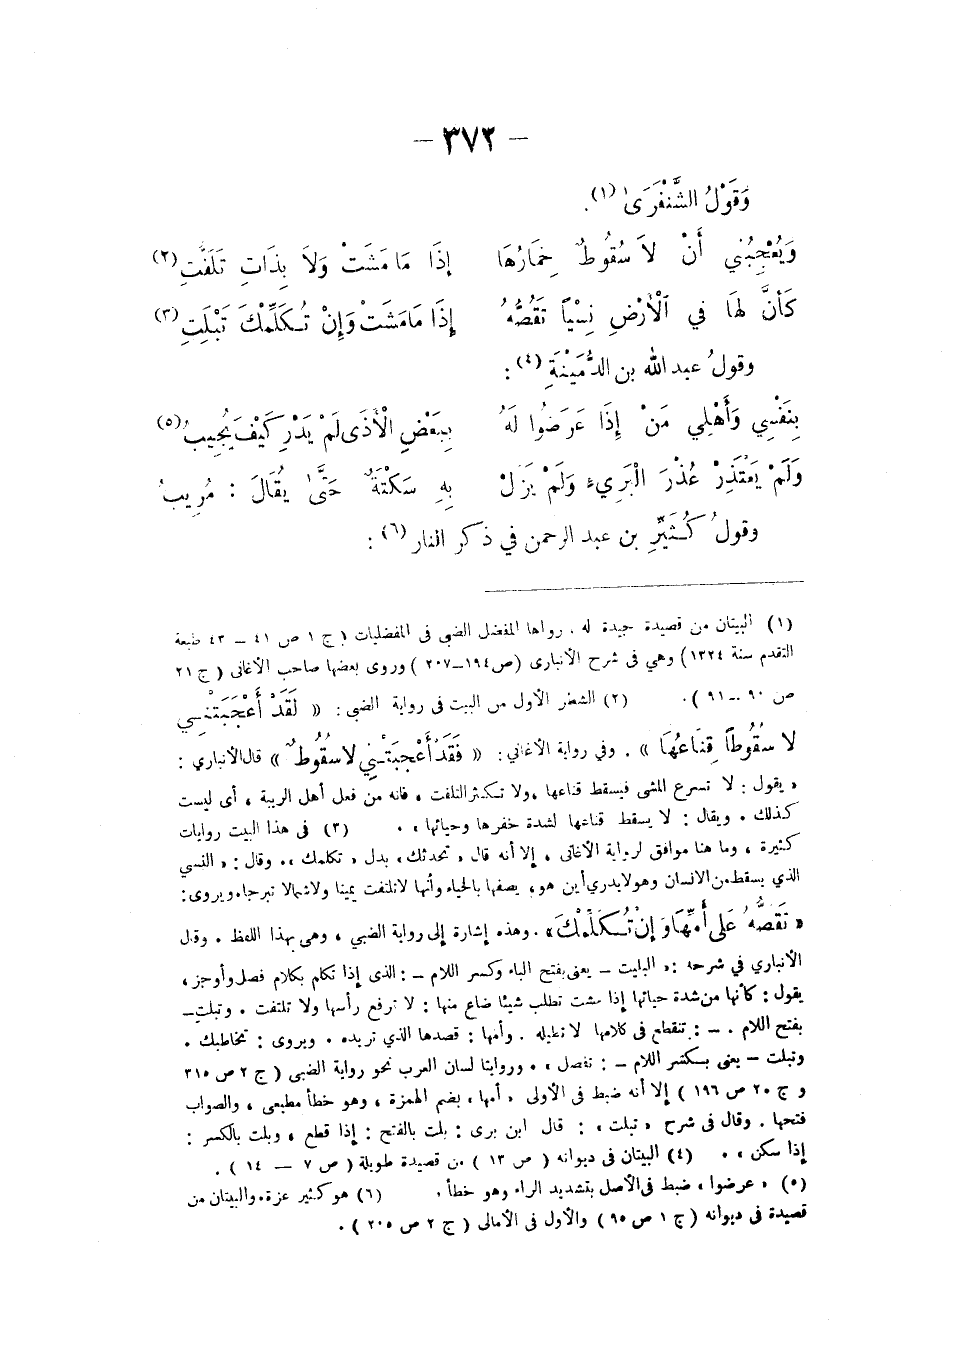 — ٣٧٢ —
وَقَوْلُ الشَّنْفَرَىٰ (١).
وَيُعْجِبُنِي أَنْ لاَ سُقُوطٌ خِمَارُهَا إِذَا مَا مَشَتْ وَلاَ بِذَاتِ تَلَفُّتِ (٢)
كَأنَّ لهَا فِي الْأَرْضِ نِسْيًا تَقُصُّهُ إِذَا مَا مَشَتْ وَإِنْ تُكَلِّمْكَ تَبْلَتِ (٣)
وقولُ عبد الله بن الدُّمَيْنَةِ (٤) :
بِنَفْسِي وَأَهْلِي مَنْ إِذَا عَرَضُوا لَهُ بِبَعْضِ الْأَذَى لَمْ يَدْرِ كَيْفَ يُجِيبُ (٥)
وَلَمْ يَعْتَذِرْ عُذْرَ الْبَرِيءِ وَلَمْ يَزَلْ بِهِ سَكْتَةٌ حَتَّى يُقَالَ : مُرِيبُ
وقولُ كُثَيِّرِ بن عبد الرحمن في ذكر النار (٦) :
(١) البيتان من قصيدة جيدة له . رواها المفضل الضبى فى المفضليات ( ج ١ ص ٤١ — ٤٣ طبعة
التقدم سنة ١٣٢٤ ) وهي فى شرح الأنبارى ( ص ١٩٤—٢٠٧ ) وروى بعضها صاحب الأغانى ( ج ٢١
ص ٩٠ — ٩١ ) . (٢) الشطر الأول من البيت فى رواية الضبى : « لَقَدْ أَعْجَبَتْنِي
لا سُقُوطًا قِنَاعُهَا » . وفي رواية الأغاني : « فَقَدْ أَعْجَبَتْنِي لا سُقُوطٌ » قال الأنباري :
« يقول : لا تسرع المشى فيسقط قناعها ، ولا تكثر التلفت ، فانه من فعل أهل الريبة ، أى ليست
كذلك . ويقال : لا يسقط قناعها لشدة خفرها وحيائها » . (٣) فى هذا البيت روايات
كثيرة ، وما هنا موافق لرواية الأغانى ، إلا أنه قال « تحدثك » بدل « تكلمك » . وقال : « النسي
الذي يسقط من الانسان وهو لا يدري أين هو ، يصفها بالحياء وأنها لا تلتفت يمينا ولا شمالا تبرجا » ويروى :
« تَقُصُّهُ عَلَى أَمِّهَا وَإِنْ تُكَلِّمْكَ » . وهذه إشارة إلى رواية الضبي ، وهى بهذا اللفظ . وقال
الأنباري في شرحه : « البليت — يعنى بفتح الباء وكسر اللام — : الذى إذا تكلم بكلام فصل وأوجز ،
يقول : كأنها من شدة حيائها إذا مشت تطلب شيئا ضاع منها : لا ترفع رأسها ولا تلتفت . وتبلت —
بفتح اللام — : تنقطع فى كلامها لا تطيله . وأمها : قصدها الذي تريده . ويروى : تخاطبك .
وتبلت — يعنى بكسر اللام — : تفصل » . وروايتا لسان العرب نحو رواية الضبى ( ج ٢ ص ٣١٥
و ج ٢٠ ص ١٩٦ ) إلا أنه ضبط فى الأولى « أمها » بضم الهمزة ، وهو خطأ مطبعى ، والصواب
فتحها . وقال فى شرح « تبلت » : قال ابن برى : بلت بالفتح : إذا قطع ، وبلت بالكسر :
إذا سكن » . (٤) البيتان فى ديوانه ( ص ١٣ ) من قصيدة طويلة ( ص ٧ — ١٤ ) .
(٥) « عرضوا » ضبط فى الأصل بتشديد الراء وهو خطأ . (٦) هو كثير عزة . والبيتان من
قصيدة فى ديوانه ( ج ١ ص ٩٥ ) والأول فى الأمالى ( ج ٢ ص ٢٠٥ ) .